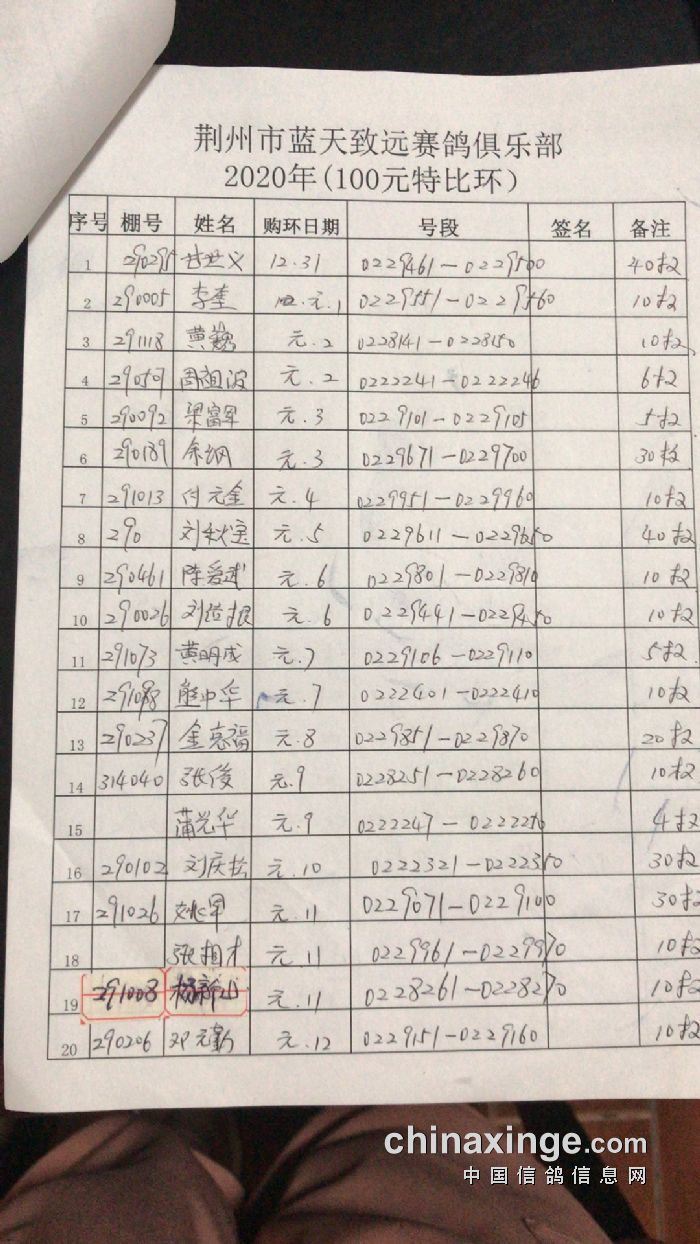 荆州市蓝天致远赛鸽俱乐部
2020年(100元特比环)
序号 棚号 姓名 购环日期 号段 签名 备注
1 290295 世义 12.31 0229461-0229500 40枚
2 290005 李奎 元.1 0229551-0229560 10枚
3 291118 黄巍 元.2 0228141-0228150 10枚
4 周祖波 元.2 0222241-0222246 6枚
5 290092 梁富军 元.3 0229101-0229105 5枚
6 290189 余纲 元.3 0229671-0229700 30枚
7 291013 付元金 元.4 0229951-0229960 10枚
8 290 刘秋宝 元.5 0229611-0229650 40枚
9 290461 陈爱武 元.6 0229801-0229810 10枚
10 290026 刘 元.6 0229441-0229450 10枚
11 291073 黄明成 元.7 0229106-0229110 5枚
12 熊中华 元.7 0222401-0222410 10枚
13 290237 金亮福 元.8 0229851-0229870 20枚
14 314040 张俊 元.9 0228251-0228260 10枚
15 蒲光华 元.9 0222247-0222250 4枚
16 290102 刘庆松 元.10 0222321-0222350 30枚
17 291026 姚军 元.11 0229071-0229100 30枚
18 张相才 元.11 0229961-0229970 10枚
19 291008 杨新 元.11 0228261-0228270 10枚
20 290206 邓元勤 元.12 0229151-0229160 10枚
chinaxinge.com
中国信鸽信息网